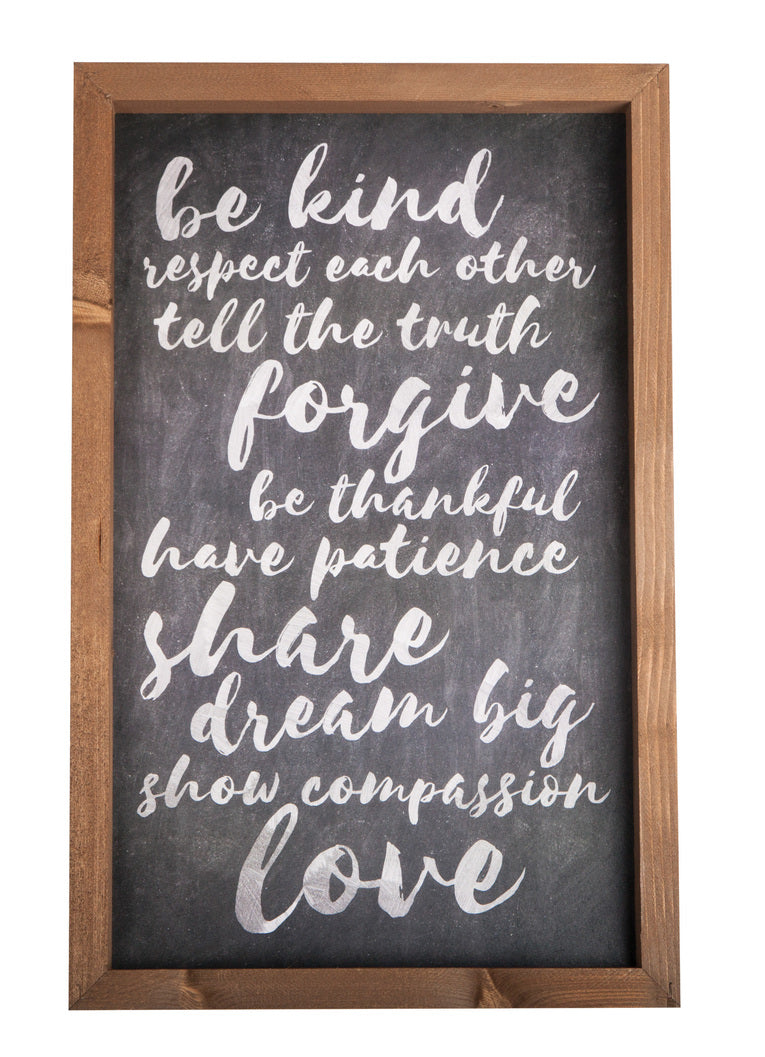 be kind
respect each other
tell the truth
forgive
be thankful
have patience
share
dream big
show compassion
love